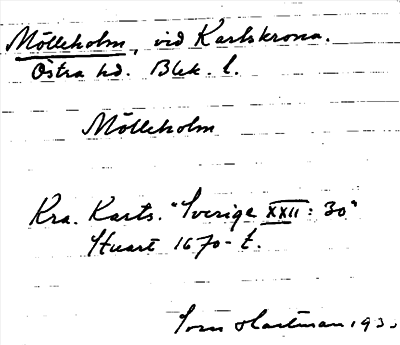 Mölleholm, vid Karlskrona.
Östra hd. Blek. l.
Mölleholm
Kra. Karts. "Sverige XXII: 30"
Stuart 1670-t.
Hartman 193.